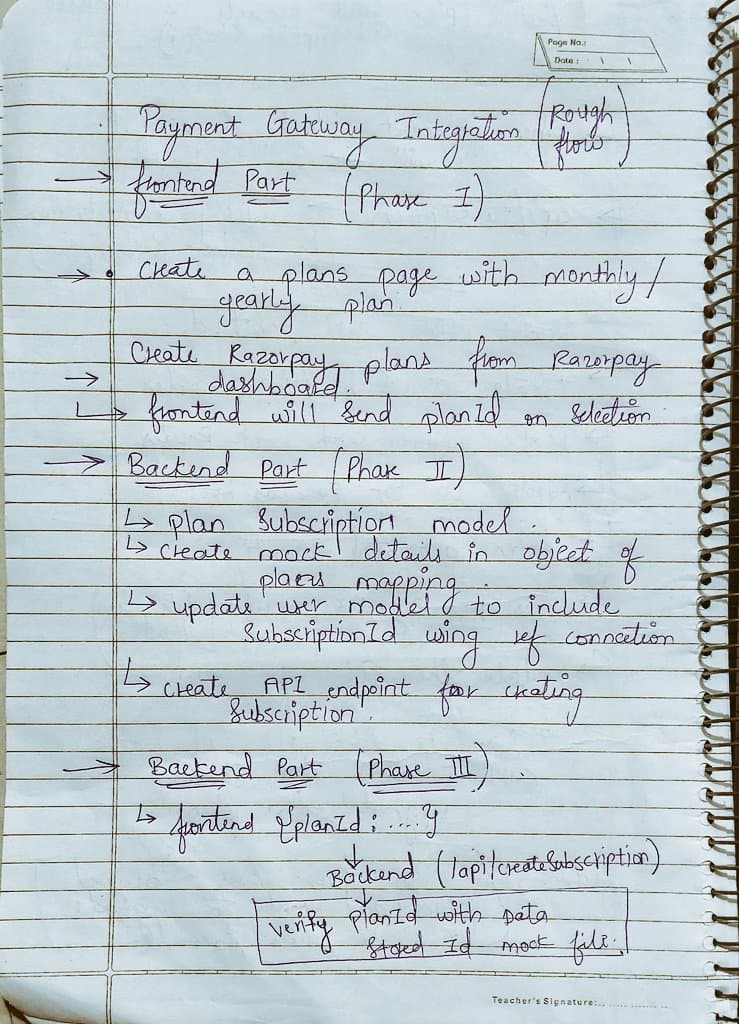 Page No.:
Date :
Payment Gateway Integration (Rough flow)
→ frontend Part (Phase I)
→ • Create a plans page with monthly/
yearly plan.
Create Razorpay plans from Razorpay
→ dashboard.
↳ frontend will send planId on selection.
→ Backend Part (Phase II)
↳ plan Subscription model.
↳ create mock details in object of
plans mapping.
↳ update user model to include
SubscriptionId using ref connection
↳ create API endpoint for creating
Subscription.
→ Backend Part (Phase III).
↳ frontend {planId: ....}
↓
Backend (/api/createSubscription)
↓
verify planId with Data
stored Id mock file.
Teacher's Signature:.................